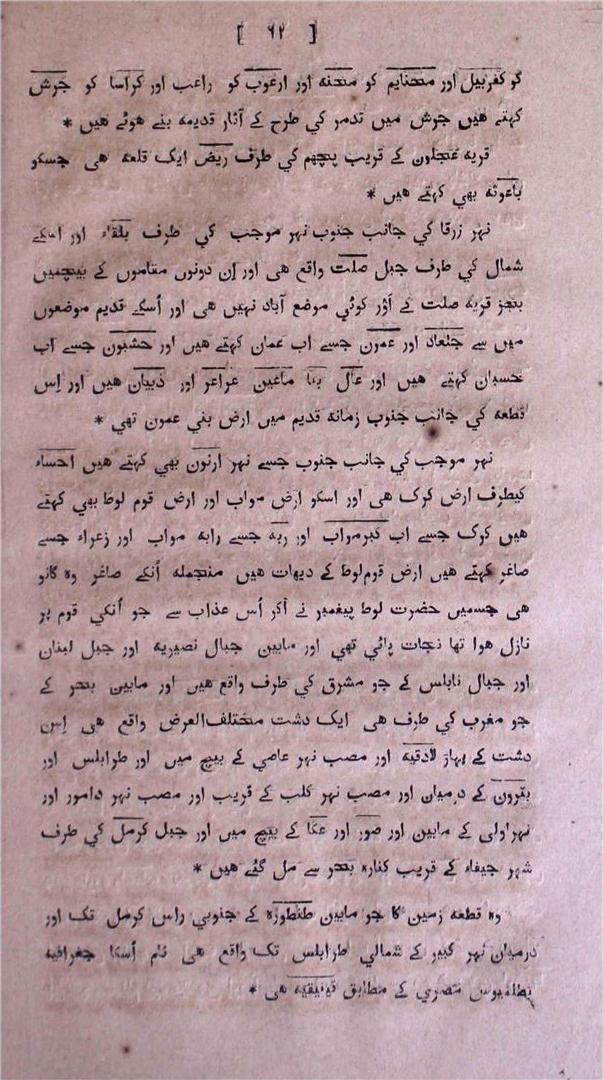 [ ۶۲ ]
کو کفربیل اور متحنایم کو متحنه اور ارغوب کو راعب اور کراسا کو جرش
کہتے هیں جرش میں تدمر کي طرح کے آثار قدیمه بنے هوئے هیں *
قریه عجلون کے قریب پچهم کي طرف ربض ایک قلعه هی جسکو
باعوثه بهي کہتے هیں *
نہر زرقا کي جانب جنوب نہر موجب کي طرف بلقاء اور اسکے
شمال کي طرف جبل صلت واقع هی اور اِن دونوں مقاموں کے بیچمیں
بجز قریه صلت کے اَوْر کوئي موضع آباد نہیں هی اور اُسکے قدیم موضعوں
میں سے جلعاد اور عمون جسے اب عمان کہتے هیں اور حشبون جسے اب
حسبان کہتے هیں اور عال بنا ماعین عراعر اور ذبیان هیں اور اِس
قطعه کي جانب جنوب زمانه قدیم میں ارض بني عمون تهي *
نہر موجب کي جانب جنوب جسے نہر ارنون بهي کہتے هیں احساء
کیطرف ارض کرک هی اور اسکو ارض مواب اور ارض قوم لوط بهي کہتے
هیں کرک جسے اب کیرمواب اور ربه جسے رابه مواب اور زعراء جسے
صاغر کہتے هیں ارض قوم لوط کے دیہات هیں منجمله اُنکے صاغر وه گانو
هی جسمیں حضرت لوط پیغمبر نے آکر اُس عذاب سے جو اُنکي قوم پر
نازل هوا تها نجات پائي تهي اور مابین جبال نصیریه اور جبل لبنان
اور جبال نابلس کے جو مشرق کي طرف واقع هیں اور مابین بحر کے
جو مغرب کي طرف هی ایک دشت مختلف العرض واقع هی اِس
دشت کے پہاڑ لاذقیه اور مصب نہر عاصي کے بیچ میں اور طرابلس اور
بترون کے درمیان اور مصب نہر کلب کے قریب اور مصب نہر دامور اور
نہر اولي کے مابین اور صور اور عکا کے بیچ میں اور جبل کرمل کي طرف
شہر حیفاء کے قریب کناره بحر سے مل گئے هیں *
وه قطعه زمین کا جو مابین طنطوره کے جنوبي راس کرمل تک اور
درمیان نہر کبیر کے شمالي طرابلس تک واقع هی نام اُسکا جغرافیه
بطلمیوس مصري کے مطابق فینیقیه هی *